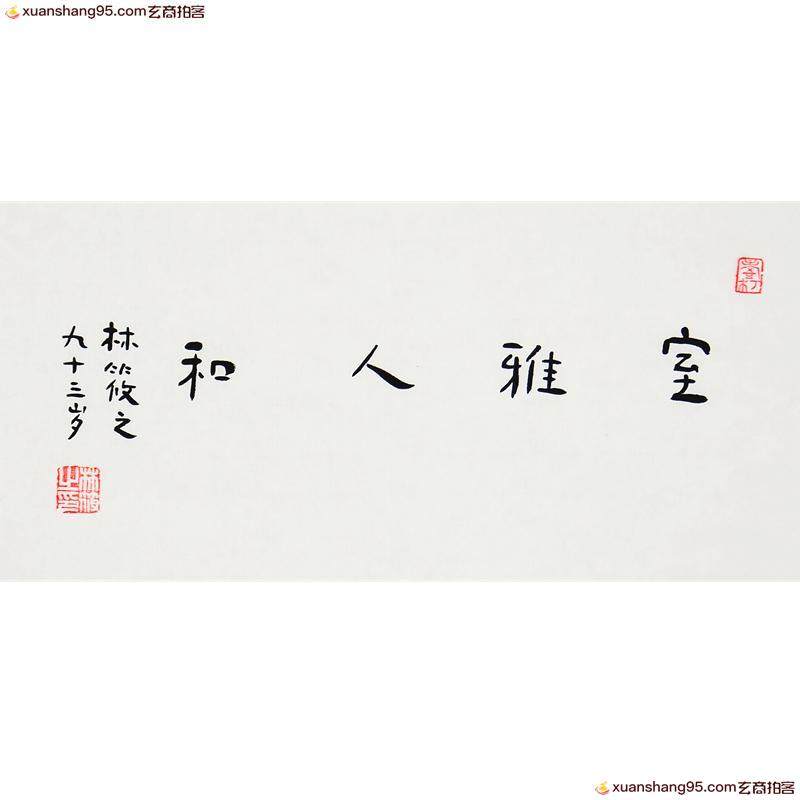 xuanshang95.com玄商拍客
室雅人和
林筱之
九十三岁
xuanshang95.com玄商拍客